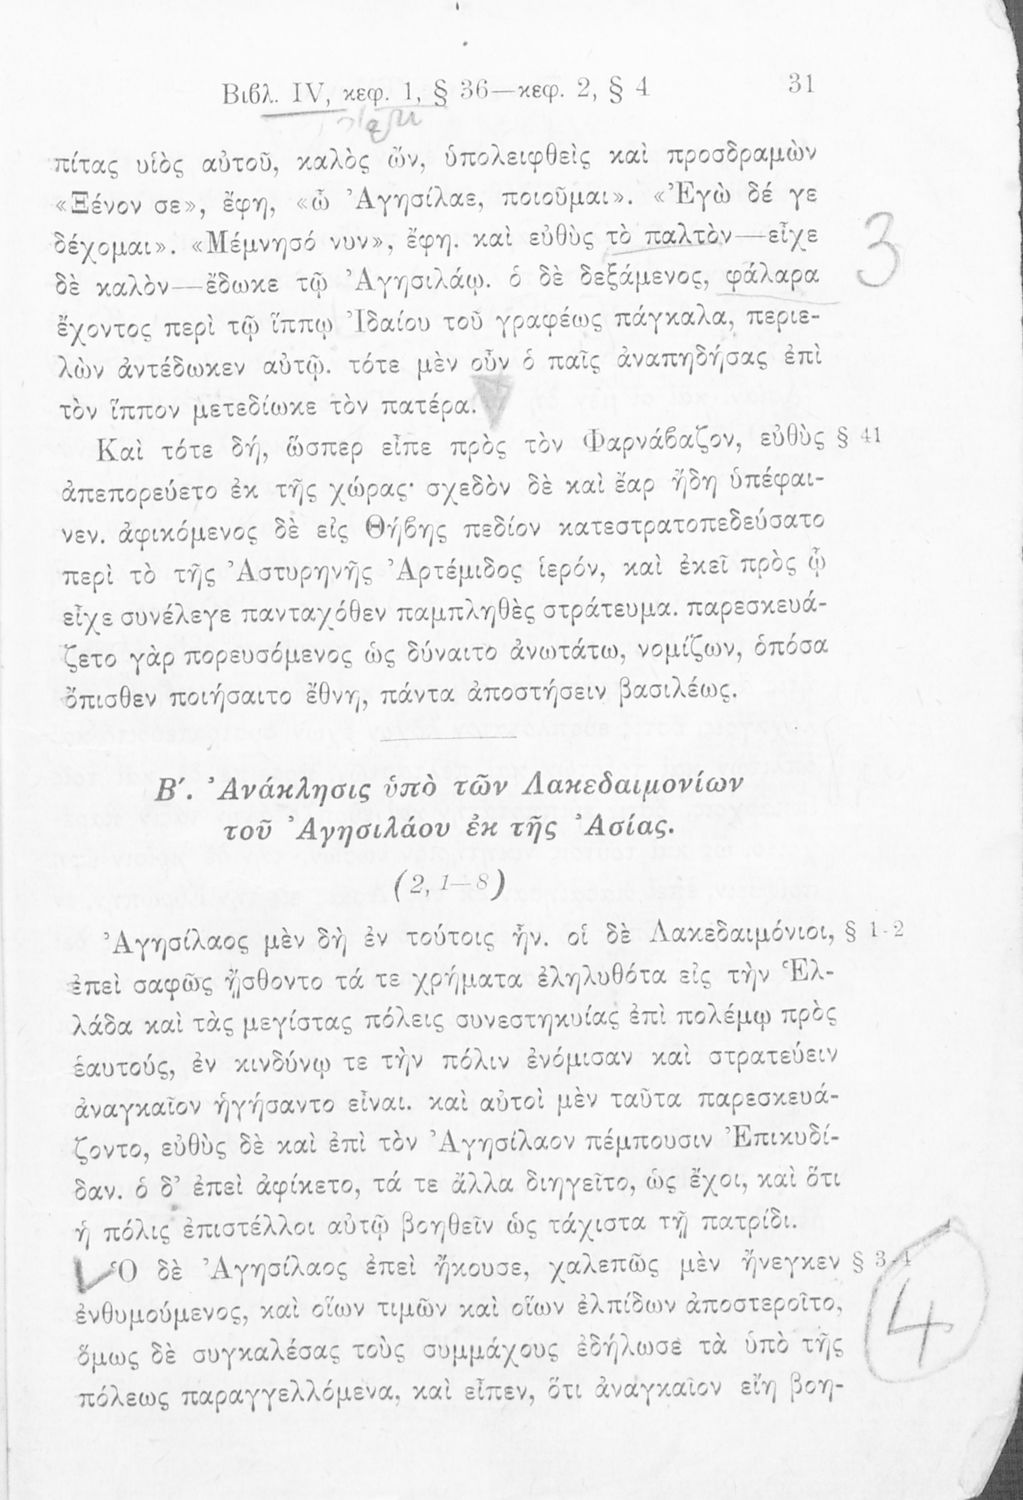 Βιβλ. IV, κεφ. 1, § 36—κεφ. 2, § 4 31
πίτας υἱὸς αὐτοῦ, καλὸς ὤν, ὑπολειφθεὶς καὶ προσδραμὼν
«Ξένον σε», ἔφη, «ὦ Ἀγησίλαε, ποιοῦμαι». «Ἐγὼ δέ γε
δέχομαι». «Μέμνησό νυν», ἔφη. καὶ εὐθὺς τὸ παλτὸν—εἶχε
δὲ καλὸν—ἔδωκε τῷ Ἀγησιλάῳ. ὁ δὲ δεξάμενος, φάλαρα
ἔχοντος περὶ τῷ ἵππῳ Ἰδαίου τοῦ γραφέως πάγκαλα, περιε-
λὼν ἀντέδωκεν αὐτῷ. τότε μὲν οὖν ὁ παῖς ἀναπηδήσας ἐπὶ
τὸν ἵππον μετεδίωκε τὸν πατέρα.
Καὶ τότε δή, ὥσπερ εἶπε πρὸς τὸν Φαρνάβαζον, εὐθὺς § 41
ἀπεπορεύετο ἐκ τῆς χώρας· σχεδὸν δὲ καὶ ἔαρ ἤδη ὑπέφαι-
νεν. ἀφικόμενος δὲ εἰς Θήβης πεδίον κατεστρατοπεδεύσατο
περὶ τὸ τῆς Ἀστυρηνῆς Ἀρτέμιδος ἱερόν, καὶ ἐκεῖ πρὸς ᾧ
εἶχε συνέλεγε πανταχόθεν παμπληθὲς στράτευμα. παρεσκευά-
ζετο γὰρ πορευσόμενος ὡς δύναιτο ἀνωτάτω, νομίζων, ὁπόσα
ὄπισθεν ποιήσαιτο ἔθνη, πάντα ἀποστήσειν βασιλέως.
Β΄. Ἀνάκλησις ὑπὸ τῶν Λακεδαιμονίων
τοῦ Ἀγησιλάου ἐκ τῆς Ἀσίας.
(2, 1—8)
Ἀγησίλαος μὲν δὴ ἐν τούτοις ἦν. οἱ δὲ Λακεδαιμόνιοι, § 1-2
ἐπεὶ σαφῶς ᾔσθοντο τά τε χρήματα ἐληλυθότα εἰς τὴν Ἑλ-
λάδα καὶ τὰς μεγίστας πόλεις συνεστηκυίας ἐπὶ πολέμῳ πρὸς
ἑαυτούς, ἐν κινδύνῳ τε τὴν πόλιν ἐνόμισαν καὶ στρατεύειν
ἀναγκαῖον ἡγήσαντο εἶναι. καὶ αὐτοὶ μὲν ταῦτα παρεσκευά-
ζοντο, εὐθὺς δὲ καὶ ἐπὶ τὸν Ἀγησίλαον πέμπουσιν Ἐπικυδί-
δαν. ὁ δ’ ἐπεὶ ἀφίκετο, τά τε ἄλλα διηγεῖτο, ὡς ἔχοι, καὶ ὅτι
ἡ πόλις ἐπιστέλλοι αὐτῷ βοηθεῖν ὡς τάχιστα τῇ πατρίδι.
Ὁ δὲ Ἀγησίλαος ἐπεὶ ἤκουσε, χαλεπῶς μὲν ἤνεγκεν § 3-4
ἐνθυμούμενος, καὶ οἵων τιμῶν καὶ οἵων ἐλπίδων ἀποστεροῖτο,
ὅμως δὲ συγκαλέσας τοὺς συμμάχους ἐδήλωσε τὰ ὑπὸ τῆς
πόλεως παραγγελλόμενα, καὶ εἶπεν, ὅτι ἀναγκαῖον εἴη βοη-
3
4